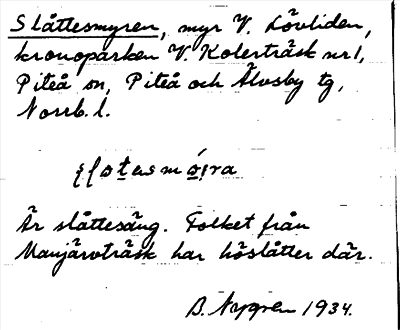 Slåttesmyren, myr V. Lövliden,
kronoparken V. Kolerträsk nr 1,
Piteå sn, Piteå och Älvsby tg,
Norrb. l.
Är slåttesäng. Folket från
Manjärvträsk har höslåtter där.
B. Nygren 1934.